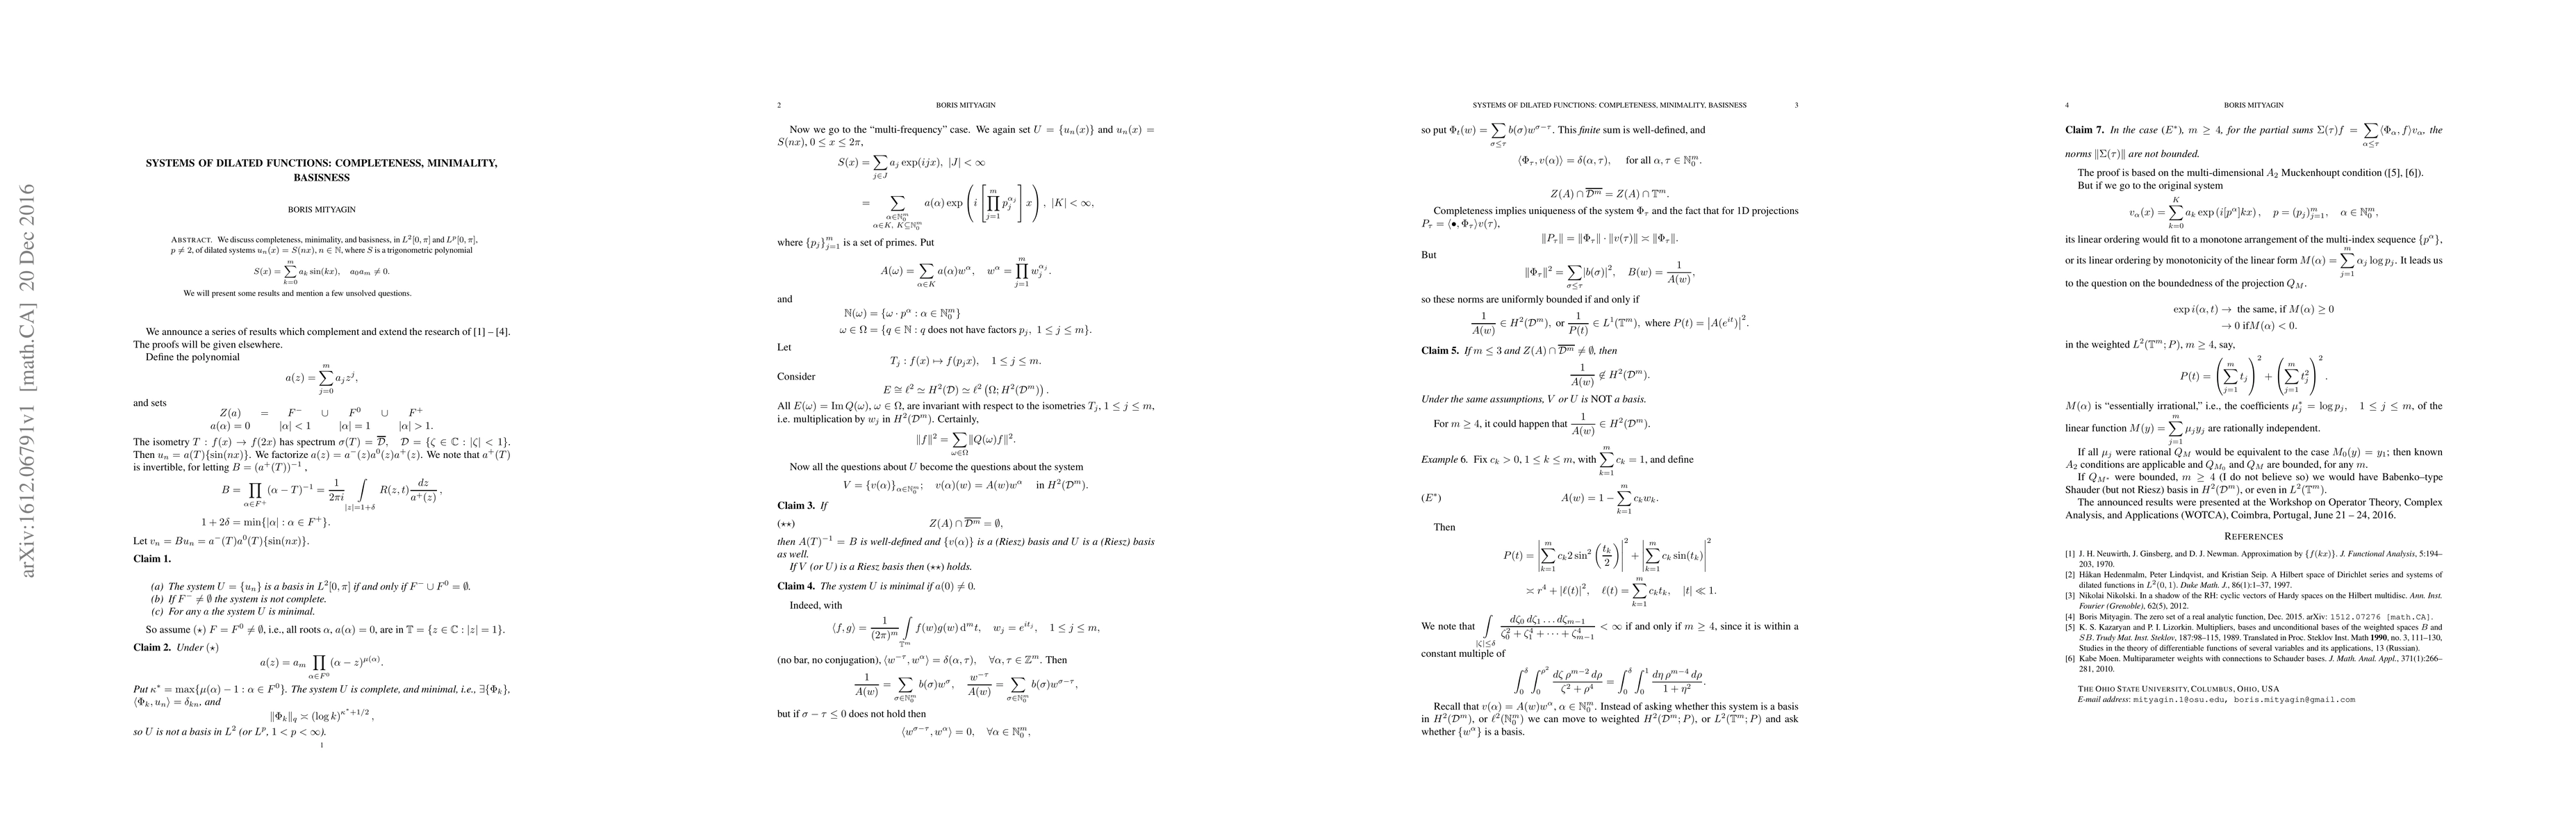 arXiv:1612.06791v1 [math.CA] 20 Dec 2016
SYSTEMS OF DILATED FUNCTIONS: COMPLETENESS, MINIMALITY,
BASISNESS
BORIS MITYAGIN
ABSTRACT. We discuss completeness, minimality, and basisness, in L²[0, π] and L^p[0, π],
p ≠ 2, of dilated systems u_n(x) = S(nx), n ∈ ℕ, where S is a trigonometric polynomial
S(x) = ∑_{k=0}^{m} a_k sin(kx), a_0 a_m ≠ 0.
We will present some results and mention a few unsolved questions.
We announce a series of results which complement and extend the research of [1] – [4].
The proofs will be given elsewhere.
Define the polynomial
a(z) = ∑_{j=0}^{m} a_j z^j,
and sets
Z(a) = F^- ∪ F^0 ∪ F^+
a(α) = 0 |α| < 1 |α| = 1 |α| > 1.
The isometry T : f(x) → f(2x) has spectrum σ(T) = \overline{𝒟}, 𝒟 = {ζ ∈ ℂ : |ζ| < 1}.
Then u_n = a(T){sin(nx)}. We factorize a(z) = a^-(z)a^0(z)a^+(z). We note that a^+(T)
is invertible, for letting B = (a^+(T))^{-1} ,
B = ∏_{α∈F^+} (α − T)^{-1} = \frac{1}{2πi} ∫_{|z|=1+δ} R(z, t) \frac{dz}{a^+(z)} ,
1 + 2δ = min{|α| : α ∈ F^+}.
Let v_n = Bu_n = a^-(T)a^0(T){sin(nx)}.
Claim 1.
(a) The system U = {u_n} is a basis in L²[0, π] if and only if F^- ∪ F^0 = ∅.
(b) If F^- ≠ ∅ the system is not complete.
(c) For any a the system U is minimal.
So assume (⋆) F = F^0 ≠ ∅, i.e., all roots α, a(α) = 0, are in 𝕋 = {z ∈ ℂ : |z| = 1}.
Claim 2. Under (⋆)
a(z) = a_m ∏_{α∈F^0} (α − z)^{μ(α)}.
Put κ* = max{μ(α) − 1 : α ∈ F^0}. The system U is complete, and minimal, i.e., ∃{Φ_k},
⟨Φ_k, u_n⟩ = δ_{kn}, and
‖Φ_k‖_q ≍ (log k)^{κ*+1/2} ,
so U is not a basis in L² (or L^p, 1 < p < ∞).
1
2 BORIS MITYAGIN
Now we go to the “multi-frequency” case. We again set U = {u_n(x)} and u_n(x) =
S(nx), 0 ≤ x ≤ 2π,
S(x) = ∑_{j∈J} a_j exp(ijx), |J| < ∞
= ∑_{α∈ℕ_0^m, α∈K, K⊆ℕ_0^m} a(α) exp ( i [ ∏_{j=1}^{m} p_j^{α_j} ] x ) , |K| < ∞,
where {p_j}_{j=1}^m is a set of primes. Put
A(ω) = ∑_{α∈K} a(α)w^α, w^α = ∏_{j=1}^{m} w_j^{α_j}.
and
ℕ(ω) = {ω · p^α : α ∈ ℕ_0^m}
ω ∈ Ω = {q ∈ ℕ : q does not have factors p_j, 1 ≤ j ≤ m}.
Let
T_j : f(x) ↦ f(p_j x), 1 ≤ j ≤ m.
Consider
E ≅ ℓ² ≃ H²(𝒟) ≃ ℓ² (Ω; H²(𝒟^m)) .
All E(ω) = Im Q(ω), ω ∈ Ω, are invariant with respect to the isometries T_j, 1 ≤ j ≤ m,
i.e. multiplication by w_j in H²(𝒟^m). Certainly,
‖f‖² = ∑_{ω∈Ω} ‖Q(ω)f‖².
Now all the questions about U become the questions about the system
V = {v(α)}_{α∈ℕ_0^m}; v(α)(w) = A(w)w^α in H²(𝒟^m).
Claim 3. If
(⋆⋆) Z(A) ∩ \overline{𝒟^m} = ∅,
then A(T)^{-1} = B is well-defined and {v(α)} is a (Riesz) basis and U is a (Riesz) basis
as well.
If V (or U) is a Riesz basis then (⋆⋆) holds.
Claim 4. The system U is minimal if a(0) ≠ 0.
Indeed, with
⟨f, g⟩ = \frac{1}{(2π)^m} ∫_{𝕋^m} f(w)g(w) d^m t, w_j = e^{it_j}, 1 ≤ j ≤ m,
(no bar, no conjugation), ⟨w^{-τ}, w^α⟩ = δ(α, τ), ∀α, τ ∈ ℤ^m. Then
\frac{1}{A(w)} = ∑_{σ∈ℕ_0^m} b(σ)w^σ, \frac{w^{-τ}}{A(w)} = ∑_{σ∈ℕ_0^m} b(σ)w^{σ−τ},
but if σ − τ ≤ 0 does not hold then
⟨w^{σ−τ}, w^α⟩ = 0, ∀α ∈ ℕ_0^m,
SYSTEMS OF DILATED FUNCTIONS: COMPLETENESS, MINIMALITY, BASISNESS 3
so put Φ_t(w) = ∑_{σ≤τ} b(σ)w^{σ−τ}. This finite sum is well-defined, and
⟨Φ_τ, v(α)⟩ = δ(α, τ), for all α, τ ∈ ℕ_0^m.
Z(A) ∩ \overline{𝒟^m} = Z(A) ∩ 𝕋^m.
Completeness implies uniqueness of the system Φ_τ and the fact that for 1D projections
P_τ = ⟨•, Φ_τ⟩v(τ),
‖P_τ‖ = ‖Φ_τ‖ · ‖v(τ)‖ ≍ ‖Φ_τ‖.
But
‖Φ_τ‖² = ∑_{σ≤τ} |b(σ)|², B(w) = \frac{1}{A(w)},
so these norms are uniformly bounded if and only if
\frac{1}{A(w)} ∈ H²(𝒟^m), or \frac{1}{P(t)} ∈ L¹(𝕋^m), where P(t) = |A(e^{it})|².
Claim 5. If m ≤ 3 and Z(A) ∩ \overline{𝒟^m} ≠ ∅, then
\frac{1}{A(w)} ∉ H²(𝒟^m).
Under the same assumptions, V or U is NOT a basis.
For m ≥ 4, it could happen that \frac{1}{A(w)} ∈ H²(𝒟^m).
Example 6. Fix c_k > 0, 1 ≤ k ≤ m, with ∑_{k=1}^{m} c_k = 1, and define
(E*) A(w) = 1 − ∑_{k=1}^{m} c_k w_k.
Then
P(t) = |∑_{k=1}^{m} c_k 2 sin² (\frac{t_k}{2})|² + |∑_{k=1}^{m} c_k sin(t_k)|²
≍ r⁴ + |ℓ(t)|², ℓ(t) = ∑_{k=1}^{m} c_k t_k, |t| ≪ 1.
We note that ∫_{|ζ|≤δ} \frac{dζ_0 dζ_1 … dζ_{m−1}}{ζ_0^2 + ζ_1^4 + ⋯ + ζ_{m−1}^4} < ∞ if and only if m ≥ 4, since it is within a
constant multiple of
∫_0^δ ∫_0^{ρ²} \frac{dζ ρ^{m−2} dρ}{ζ² + ρ⁴} = ∫_0^δ ∫_0^1 \frac{dη ρ^{m−4} dρ}{1 + η²}.
Recall that v(α) = A(w)w^α, α ∈ ℕ_0^m. Instead of asking whether this system is a basis
in H²(𝒟^m), or ℓ²(ℕ_0^m) we can move to weighted H²(𝒟^m; P), or L²(𝕋^m; P) and ask
whether {w^α} is a basis.
4 BORIS MITYAGIN
Claim 7. In the case (E*), m ≥ 4, for the partial sums Σ(τ)f = ∑_{α≤τ} ⟨Φ_α, f⟩v_α, the
norms ‖Σ(τ)‖ are not bounded.
The proof is based on the multi-dimensional A_2 Muckenhoupt condition ([5], [6]).
But if we go to the original system
v_α(x) = ∑_{k=0}^{K} a_k exp (i[p^α]kx) , p = (p_j)_{j=1}^m, α ∈ ℕ_0^m,
its linear ordering would fit to a monotone arrangement of the multi-index sequence {p^α},
or its linear ordering by monotonicity of the linear form M(α) = ∑_{j=1}^{m} α_j log p_j. It leads us
to the question on the boundedness of the projection Q_M.
exp i(α, t) → the same, if M(α) ≥ 0
→ 0 ifM(α) < 0.
in the weighted L²(𝕋^m; P), m ≥ 4, say,
P(t) = (∑_{j=1}^{m} t_j)² + (∑_{j=1}^{m} t_j²)².
M(α) is “essentially irrational,” i.e., the coefficients μ_j^* = log p_j, 1 ≤ j ≤ m, of the
linear function M(y) = ∑_{j=1}^{m} μ_j y_j are rationally independent.
If all μ_j were rational Q_M would be equivalent to the case M_0(y) = y_1; then known
A_2 conditions are applicable and Q_{M_0} and Q_M are bounded, for any m.
If Q_{M*} were bounded, m ≥ 4 (I do not believe so) we would have Babenko–type
Shauder (but not Riesz) basis in H²(𝒟^m), or even in L²(𝕋^m).
The announced results were presented at the Workshop on Operator Theory, Complex
Analysis, and Applications (WOTCA), Coimbra, Portugal, June 21 – 24, 2016.
REFERENCES
[1] J. H. Neuwirth, J. Ginsberg, and D. J. Newman. Approximation by {f(kx)}. J. Functional Analysis, 5:194–
203, 1970.
[2] Håkan Hedenmalm, Peter Lindqvist, and Kristian Seip. A Hilbert space of Dirichlet series and systems of
dilated functions in L²(0, 1). Duke Math. J., 86(1):1–37, 1997.
[3] Nikolai Nikolski. In a shadow of the RH: cyclic vectors of Hardy spaces on the Hilbert multidisc. Ann. Inst.
Fourier (Grenoble), 62(5), 2012.
[4] Boris Mityagin. The zero set of a real analytic function, Dec. 2015. arXiv: 1512.07276 [math.CA].
[5] K. S. Kazaryan and P. I. Lizorkin. Multipliers, bases and unconditional bases of the weighted spaces B and
SB. Trudy Mat. Inst. Steklov, 187:98–115, 1989. Translated in Proc. Steklov Inst. Math 1990, no. 3, 111–130,
Studies in the theory of differentiable functions of several variables and its applications, 13 (Russian).
[6] Kabe Moen. Multiparameter weights with connections to Schauder bases. J. Math. Anal. Appl., 371(1):266–
281, 2010.
THE OHIO STATE UNIVERSITY, COLUMBUS, OHIO, USA
E-mail address: mityagin.1@osu.edu, boris.mityagin@gmail.com